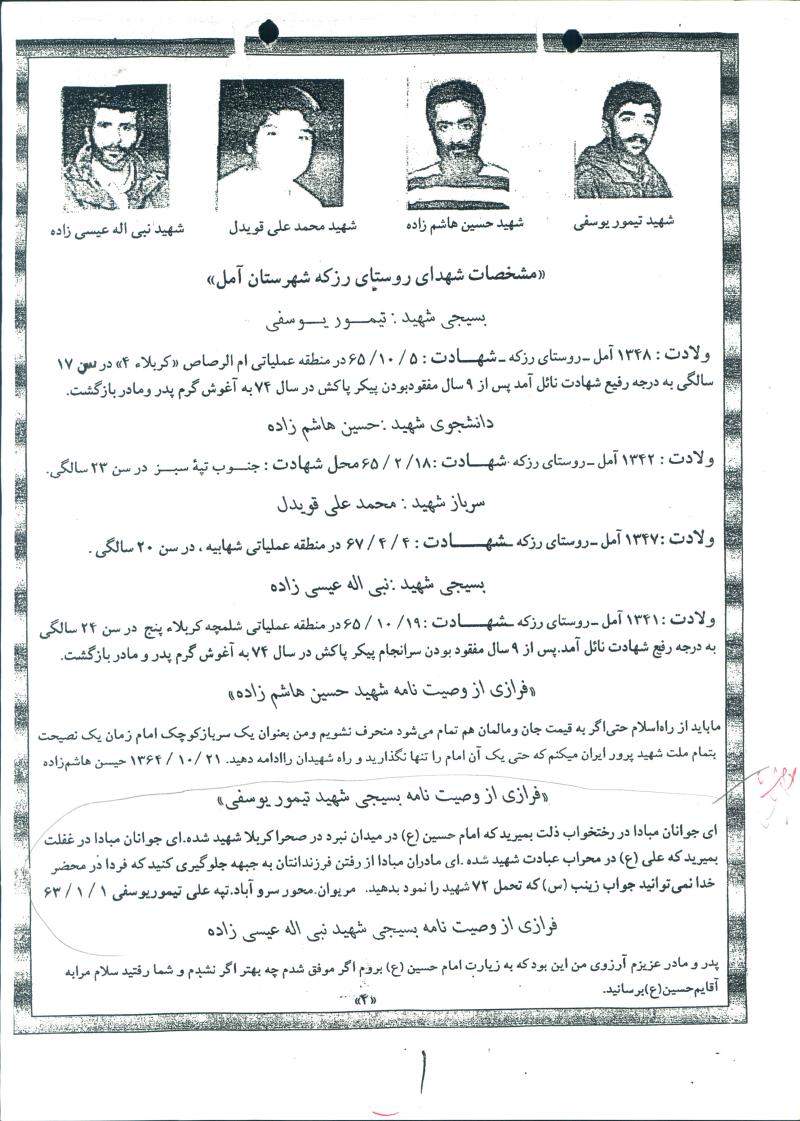 شهید تیمور یوسفی
شهید حسین هاشم زاده
شهید محمد علی قویدل
شهید نبی اله عیسی زاده
«مشخصات شهدای روستای رزکه شهرستان آمل»
بسیجی شهید : تیمـــور یـــوسفی
ولادت : ۱۳۴۸ آمل ـ روستای رزکه ـ شهـــادت : ۵ / ۱۰ / ۶۵ در منطقه عملیاتی ام الرصاص «کربلاء ۴» در سن ۱۷
سالگی به درجه رفیع شهادت نائل آمد پس از ۹ سال مفقودبودن پیکر پاکش در سال ۷۴ به آغوش گرم پدر ومادر بازگشت.
دانشجوی شهید :حسین هاشم زاده
ولادت : ۱۳۴۲ آمل ـ روستای رزکه ـ شهـــادت :۱۸/ ۲ / ۶۵ محل شهادت : جنـــوب تپهٔ سبـــز در سن ۲۳ سالگی.
سرباز شهید : محمد علی قویدل
ولادت :۱۳۴۷ آمل ـ روستای رزکه ـ شهـــــادت : ۴ / ۴ / ۶۷ در منطقه عملیاتی شهابیه ، در سن ۲۰ سالگی .
بسیجی شهید :نبی اله عیسی زاده
ولادت : ۱۳۴۱ آمل ـ روستای رزکه ـ شهـــــادت :۱۹/ ۱۰ / ۶۵ در منطقه عملیاتی شلمچه کربلاء پنج در سن ۲۴ سالگی
به درجه رفع شهادت نائل آمد.پس از ۹ سال مفقود بودن سرانجام پیکر پاکش در سال ۷۴ به آغوش گرم پدر و مادر بازگشت.
«فرازی از وصیت نامه شهید حسین هاشم زاده»
ماباید از راه‌اسلام حتی‌اگر به قیمت جان ومالمان هم تمام می‌شود منحرف نشویم ومن بعنوان یک سربازکوچک امام زمان یک نصیحت
بتمام ملت شهید پرور ایران میکنم‌که حتی یک آن امام را تنها نگذارید و راه شهیدان راادامه دهید. ۲۱ / ۱۰ / ۱۳۶۴ حیسن هاشم‌زاده
«فرازی از وصیت نامه بسیجی شهید تیمور یوسفی»
ای جوانان مبادا در رختخواب ذلت بمیرید که امام حسین (ع) در میدان نبرد در صحرا کربلا شهید شده.ای جوانان مبادا در غفلت
بمیرید که علی (ع) در محراب عبادت شهید شده .ای مادران مبادا از رفتن فرزندانتان به جبهه جلوگیری کنید که فردا در محضر
خدا نمی‌توانید جواب زینب (س) که تحمل ۷۲ شهید را نمود بدهید. مریوان.محور سرو آباد.تپه علی تیموریوسفی ۱ / ۱ / ۶۳
فرازی از وصیت نامه بسیجی شهید نبی اله عیسی زاده
پدر و مادر عزیزم آرزوی من این بودکه به زیارت امام حسین (ع) بروم اگر موفق شدم چه بهتر اگر نشدم و شما رفتید سلام مرابه
آقایم‌حسین(ع)برسانید.
«۴»